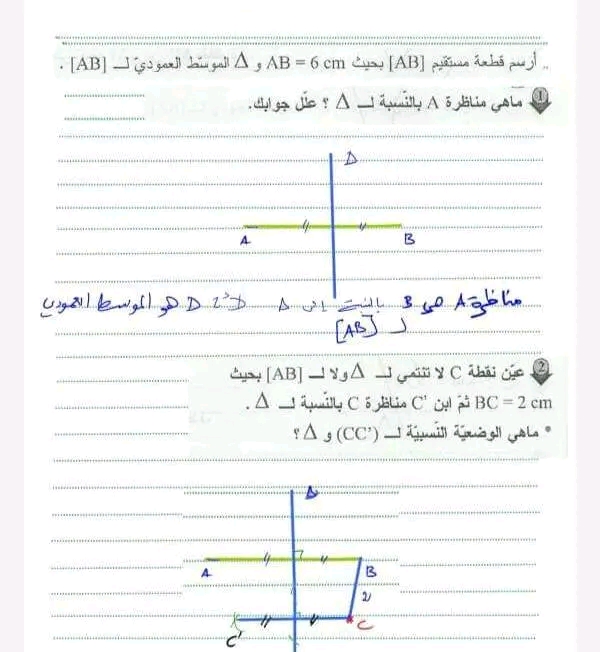 .. أرسم قطعة مستقيم [AB] بحيث AB = 6 cm و Δ الموسّط العموديّ لـ [AB] .
1 ماهي مناظرة A بالنّسبة لـ Δ ؟ علّل جوابك.
Δ
A B
مناظرة A هي B بالنسبة إلى Δ لأنّ Δ هو الموسط العمودي
لـ [AB]
2 عيّن نقطة C لا تنتمي لـ Δ ولا لـ [AB] بحيث
BC = 2 cm ثمّ ابن C' مناظرة C بالنّسبة لـ Δ .
• ماهي الوضعيّة النّسبيّة لـ (CC') و Δ ؟
Δ
A B
2
C' C